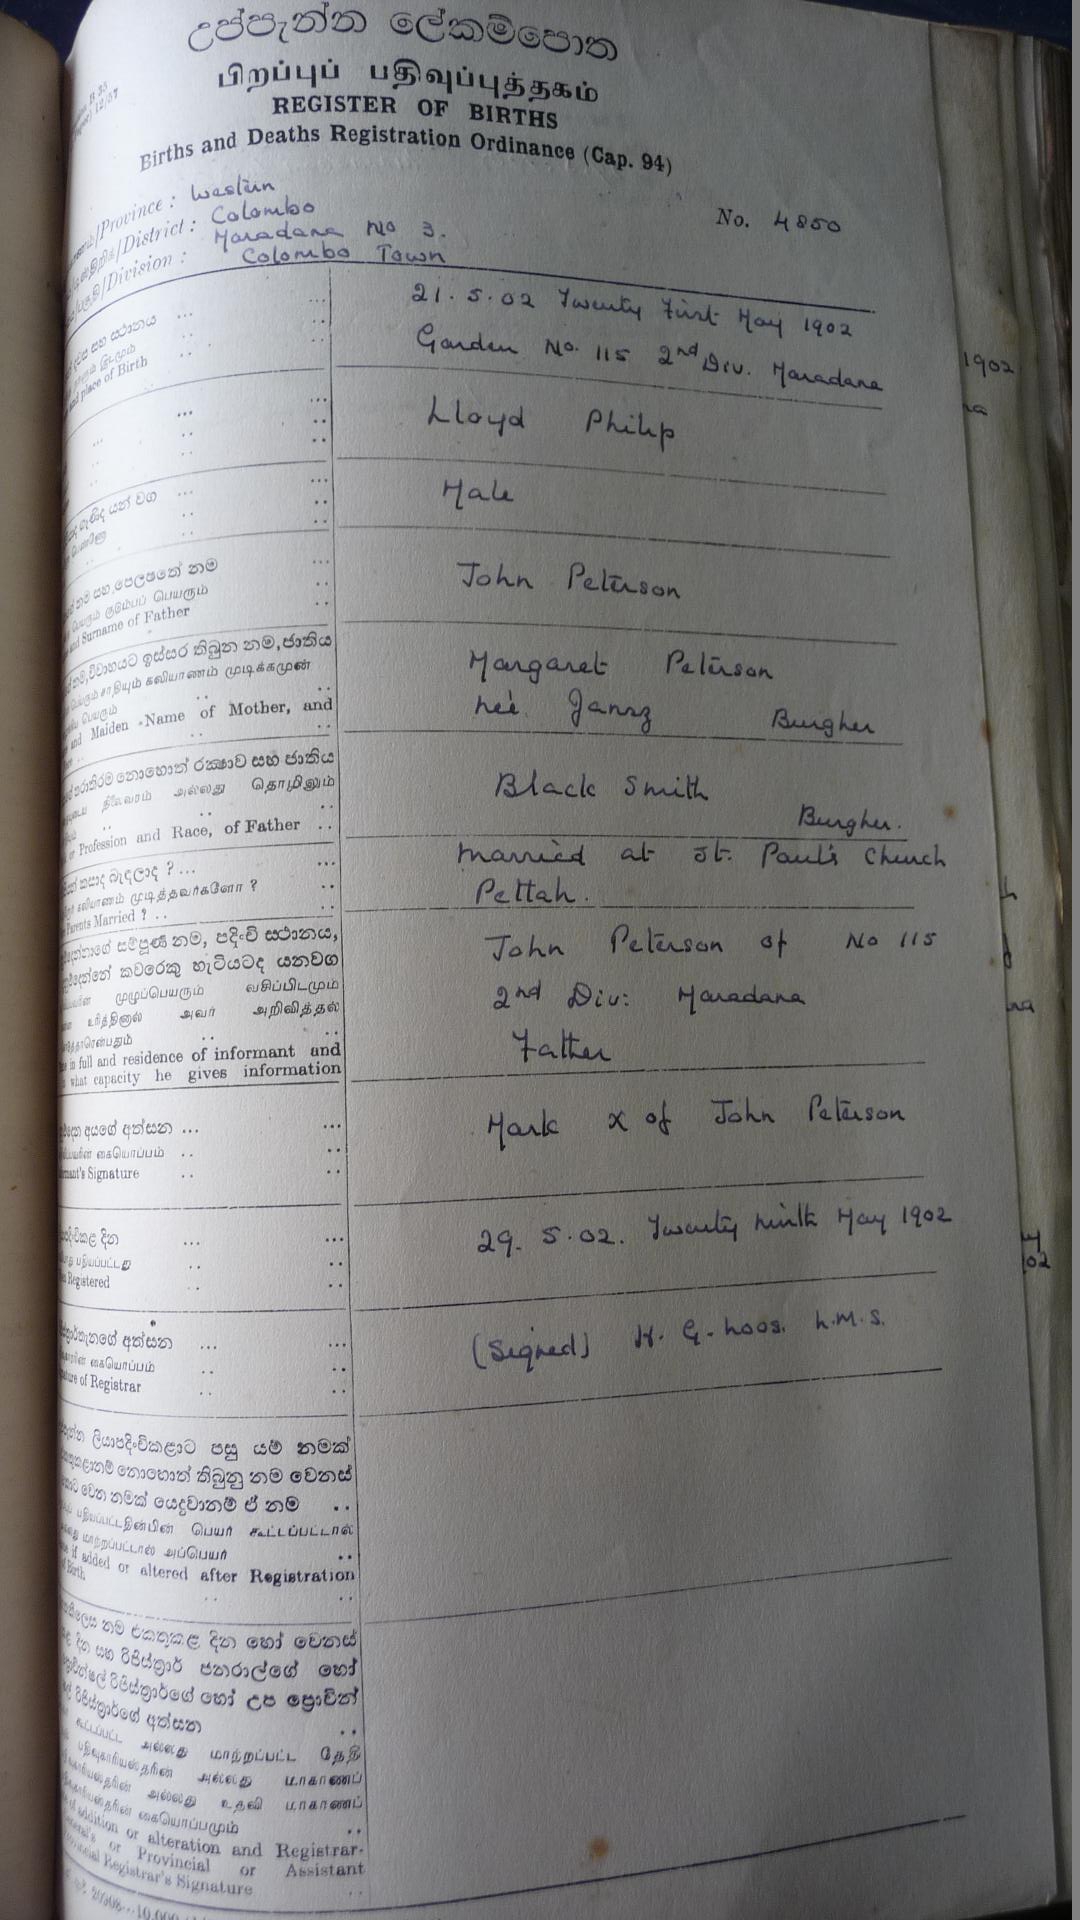 උප්පැන්න ලේකම්පොත
பிறப்புப் பதிவுப்புத்தகம்
REGISTER OF BIRTHS
Births and Deaths Registration Ordinance (Cap. 94)
No. 4850
/Province : Western
/District : Colombo
Maradana No 3.
/Division : Colombo Town
දවස සහ ස්ථානය ...
and place of Birth
21. 5. 02 Twenty First May 1902
Garden No. 115 2nd Div. Maradana
Lloyd Philip
ගැණිද යන් වග
Male
නම සහ පෙලපතේ නම
பெயரும் குடும்பப் பெயரும்
and Surname of Father
John Peterson
නම, විවාහයට ඉස්සර තිබුන නම, ජාතිය
பெயரும் சாதியும் கலியாணம் முடிக்கமுன்
பெயரும்
and Maiden Name of Mother, and
Margaret Peterson
neé Jansz Burgher
තරාතිරම නොහොත් රක්ෂාව සහ ජාතිය
நிலவரம் அல்லது தொழிலும்
or Profession and Race, of Father ..
Black Smith
Burgher.
කසාද බැඳලාද ? ...
கலியாணம் முடித்தவர்களோ ?
Parents Married ? ..
Married at St. Paul's Church
Pettah.
සම්පූර්ණ නම, පදිංචි ස්ථානය,
කවරෙකු හැටියටද යනවග
முழுப்பெயரும் வசிப்பிடமும்
உரித்தினால் அவர் அறிவித்தல்
in full and residence of informant and
what capacity he gives information
John Peterson of No 115
2nd Div: Maradana
Father
අයගේ අත්සන ...
கையொப்பம் ..
Signature ..
Mark X of John Peterson
දින ...
பதியப்பட்டது ..
Registered ..
29. 5. 02. Twenty ninth May 1902
අත්සන ...
கையொப்பம் ..
of Registrar ..
(Signed) H. G. Loos. L.M.S.
ලියාපදිංචිකළාට පසු යම් නමක්
නොහොත් තිබුනු නම වෙනස්
වෙන නමක් යෙදුවානම් ඒ නම ..
பதியப்பட்டதின்பின் பெயர் கூட்டப்பட்டால்
மாற்றப்பட்டால் அப்பெயர் ..
if added or altered after Registration
Birth
නම එකතුකළ දින හෝ වෙනස්
දින සහ රෙජිස්ත්‍රාර් ජනරාල්ගේ හෝ
රෙජිස්ත්‍රාර්ගේ හෝ උප ප්‍රොවින්
රෙජිස්ත්‍රාර්ගේ අත්සන ..
கூட்டப்பட்ட அல்லது மாற்றப்பட்ட தேதி
அல்லது மாகாணப்
அல்லது உதவி மாகாணப்
கையொப்பமும் ..
of addition or alteration and Registrar-
or Provincial or Assistant
Registrar's Signature ..
1902